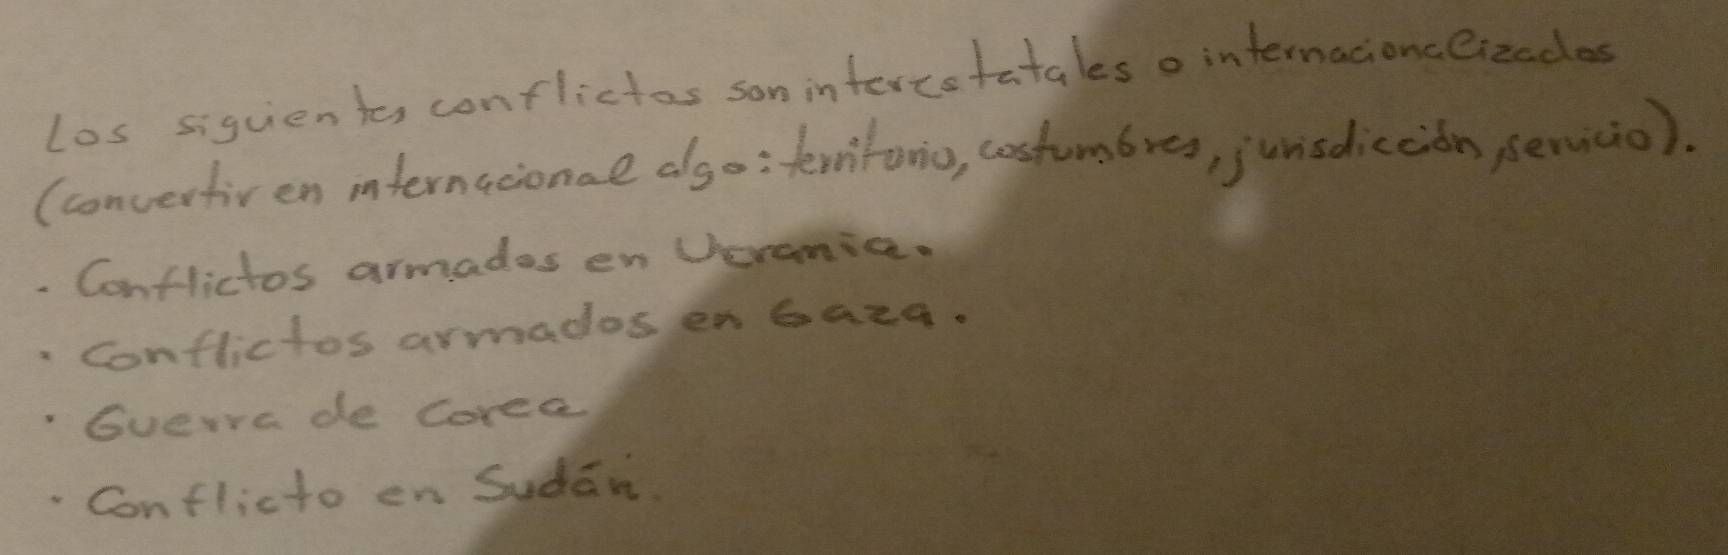 Los siguientes conflictos son interestatales o internacionalizados
(convertir en internacional algo: territorio, costumbres, jurisdicción, servicio).
· Conflictos armados en Ucrania.
· Conflictos armados en Gaza.
· Guerra de Corea
· Conflicto en Sudán.